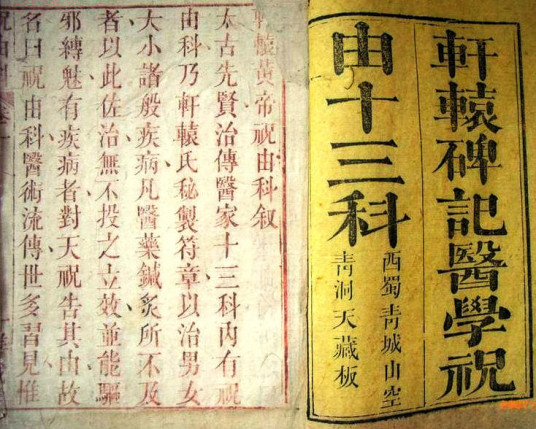 軒轅碑記醫學祝
由十三科
西蜀青城山空
青洞天藏板
軒轅黃帝祝由科叙
太古先賢治傳醫家十三科內有祝
由科乃軒轅氏秘製符章以治男女
大小諸般疾病凡醫藥鍼炙所不及
者以此佐治無不投之立效並能驅
邪縛魅有疾病者對天祝告其由故
名曰祝由科醫術流傳世多習見惟